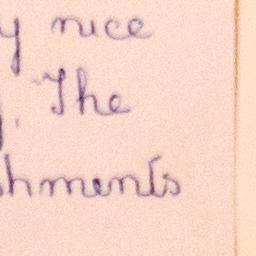 y nice
. The
hments